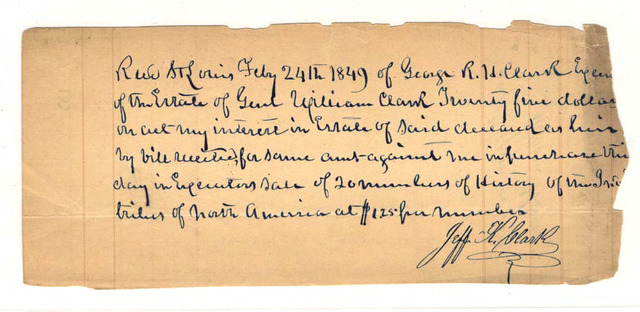 Recd St Louis Feby 24th 1849 of George R. H. Clark Execu
of the Estate of Genl William Clark Twenty five dollar
on act my interest in Estate of said deceased as heir
by bill receited for same amt against me in purchase this
day in Executors sale of 20 numbers of History of the Indi
tribes of North America at $1.25 per number
Jeff. K. Clark